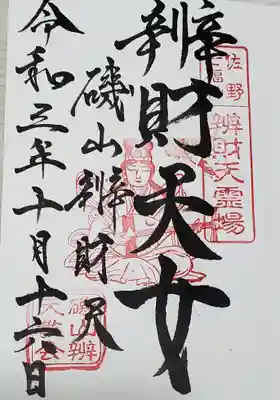 佐野
辨財天霊場
辨財天女
磯山辨財天
令和三年十月十六日
磯山辨